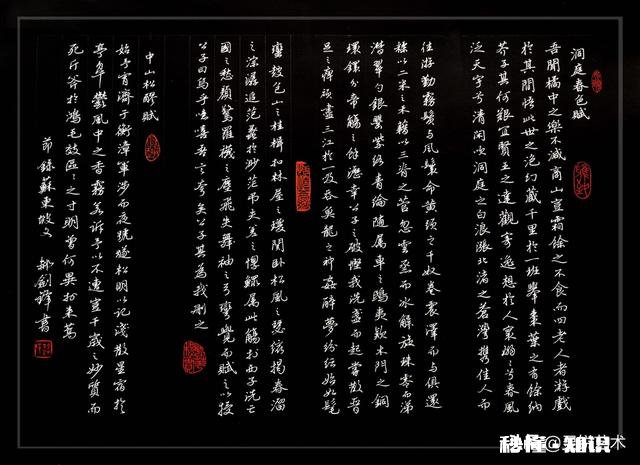 洞庭春色賦
吾聞橘中之樂不減商山豈霜餘之不食而四老人者游戲
於其間悟此世之泡幻藏千里於一班舉棗葉之有餘納
芥子其何艱宜賢王之達觀寄逸想於人寰嫋嫋兮春風
泛天宇兮清閑吹洞庭之白浪漲北渚之蒼灣攜佳人而
往游勤霧鬢與風鬟命黃頭之千奴卷震澤而與俱還
糅以二米之禾藉以三脊之菅忽雲蒸而冰解旋珠零而涕
潸翠勺銀罌紫絡青綸隨屬車之鴟夷款木門之銅
環鐶分帝觴之餘瀝幸公子之破慳我洗盞而起嘗散腰
足之痹頑盡三江於一吸吞魚龍之神姦醉夢紛紜始如髦
蠻鼓包山之桂楫扣林屋之瓊關卧松風之瑟縮揭春溜
之淙潺追范蠡於渺茫弔夫差之惸鰥屬此觴於西子洗亡
國之愁顏驚羅襪之塵飛失舞袖之弓彎覺而賦之以授
公子曰烏乎噫嘻吾言夸矣公子其為我刪之
中山松醪賦
始予宵濟於衡漳軍涉而夜號燧松明以記淺散星宿於
亭皋鬱風中之香霧若訴予以不遭豈千歲之妙質而
死斤斧於鴻毛效區區之寸明曾何異於束蒿
節錄蘇東坡文 郝劍鋒書
秒懂·知识